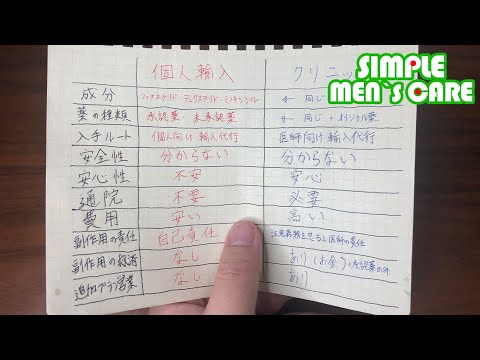 SIMPLE
MEN`S CARE
個人輸入 クリニッ
成分 フィナステリド デュタステリド ミノキシジル ← 同じ
薬の種類 承認薬 未承認薬 ← 同じ + オリジナル薬
入手ルート 個人向け 輸入代行 医師向け 輸入代行
安全性 分からない 分からない
安心性 不安 安心
通院 不要 必要
費用 安い 高い
副作用の責任 自己責任 注意義務を怠ると医師の責任
副作用の救済 なし あり(お金)
追加プラン営業 なし あり